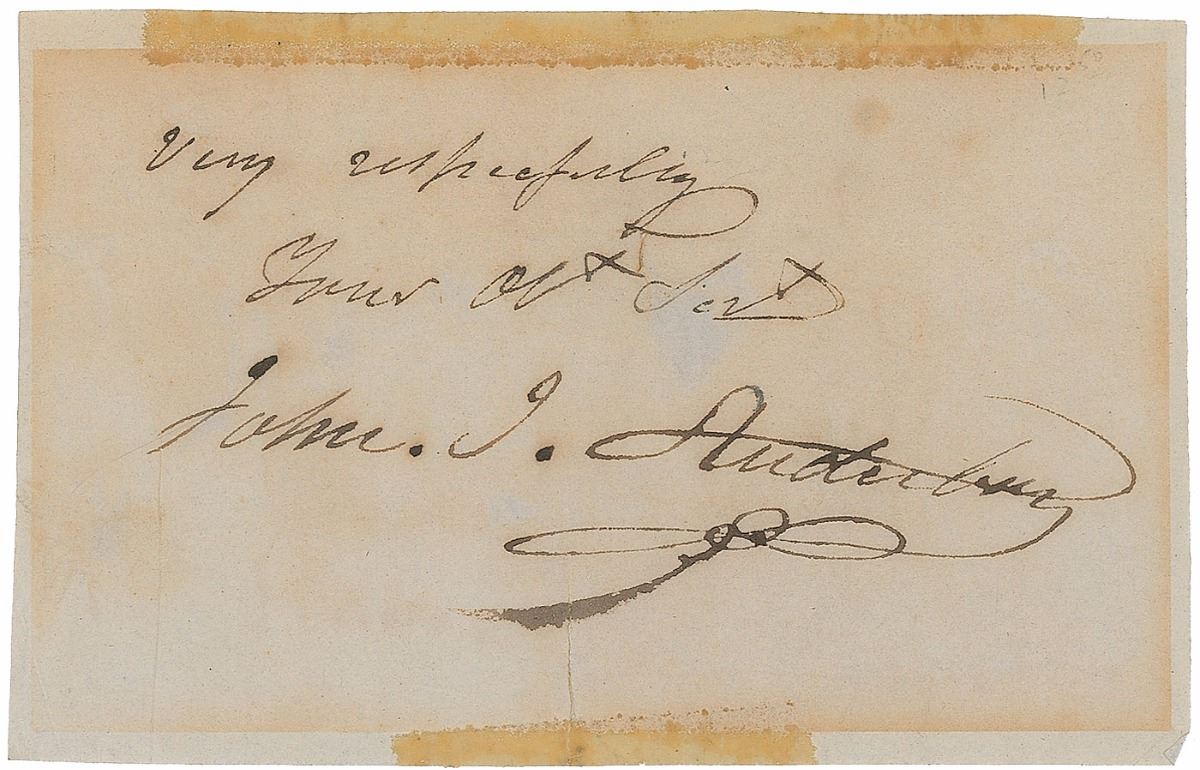 Very respecfully
Your Obt Servt
John. J. Audubon